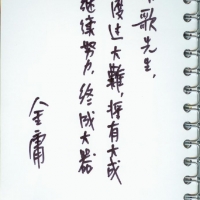 歌先生,
度过大難,將有大成
继续努力,終成大器
金庸